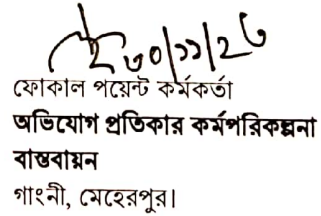 ৩০/১১/২৩
ফোকাল পয়েন্ট কর্মকর্তা
অভিযোগ প্রতিকার কর্মপরিকল্পনা
বাস্তবায়ন
গাংনী, মেহেরপুর।